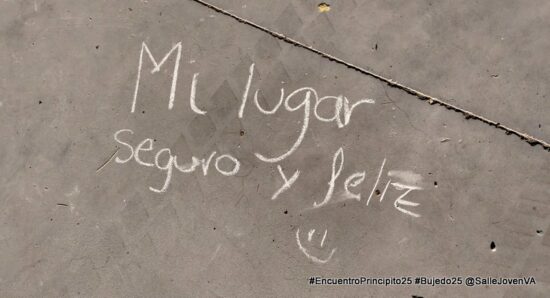 Mi lugar
seguro y feliz
#EncuentroPrincipito25 #Bujedo25 @SalleJovenVA